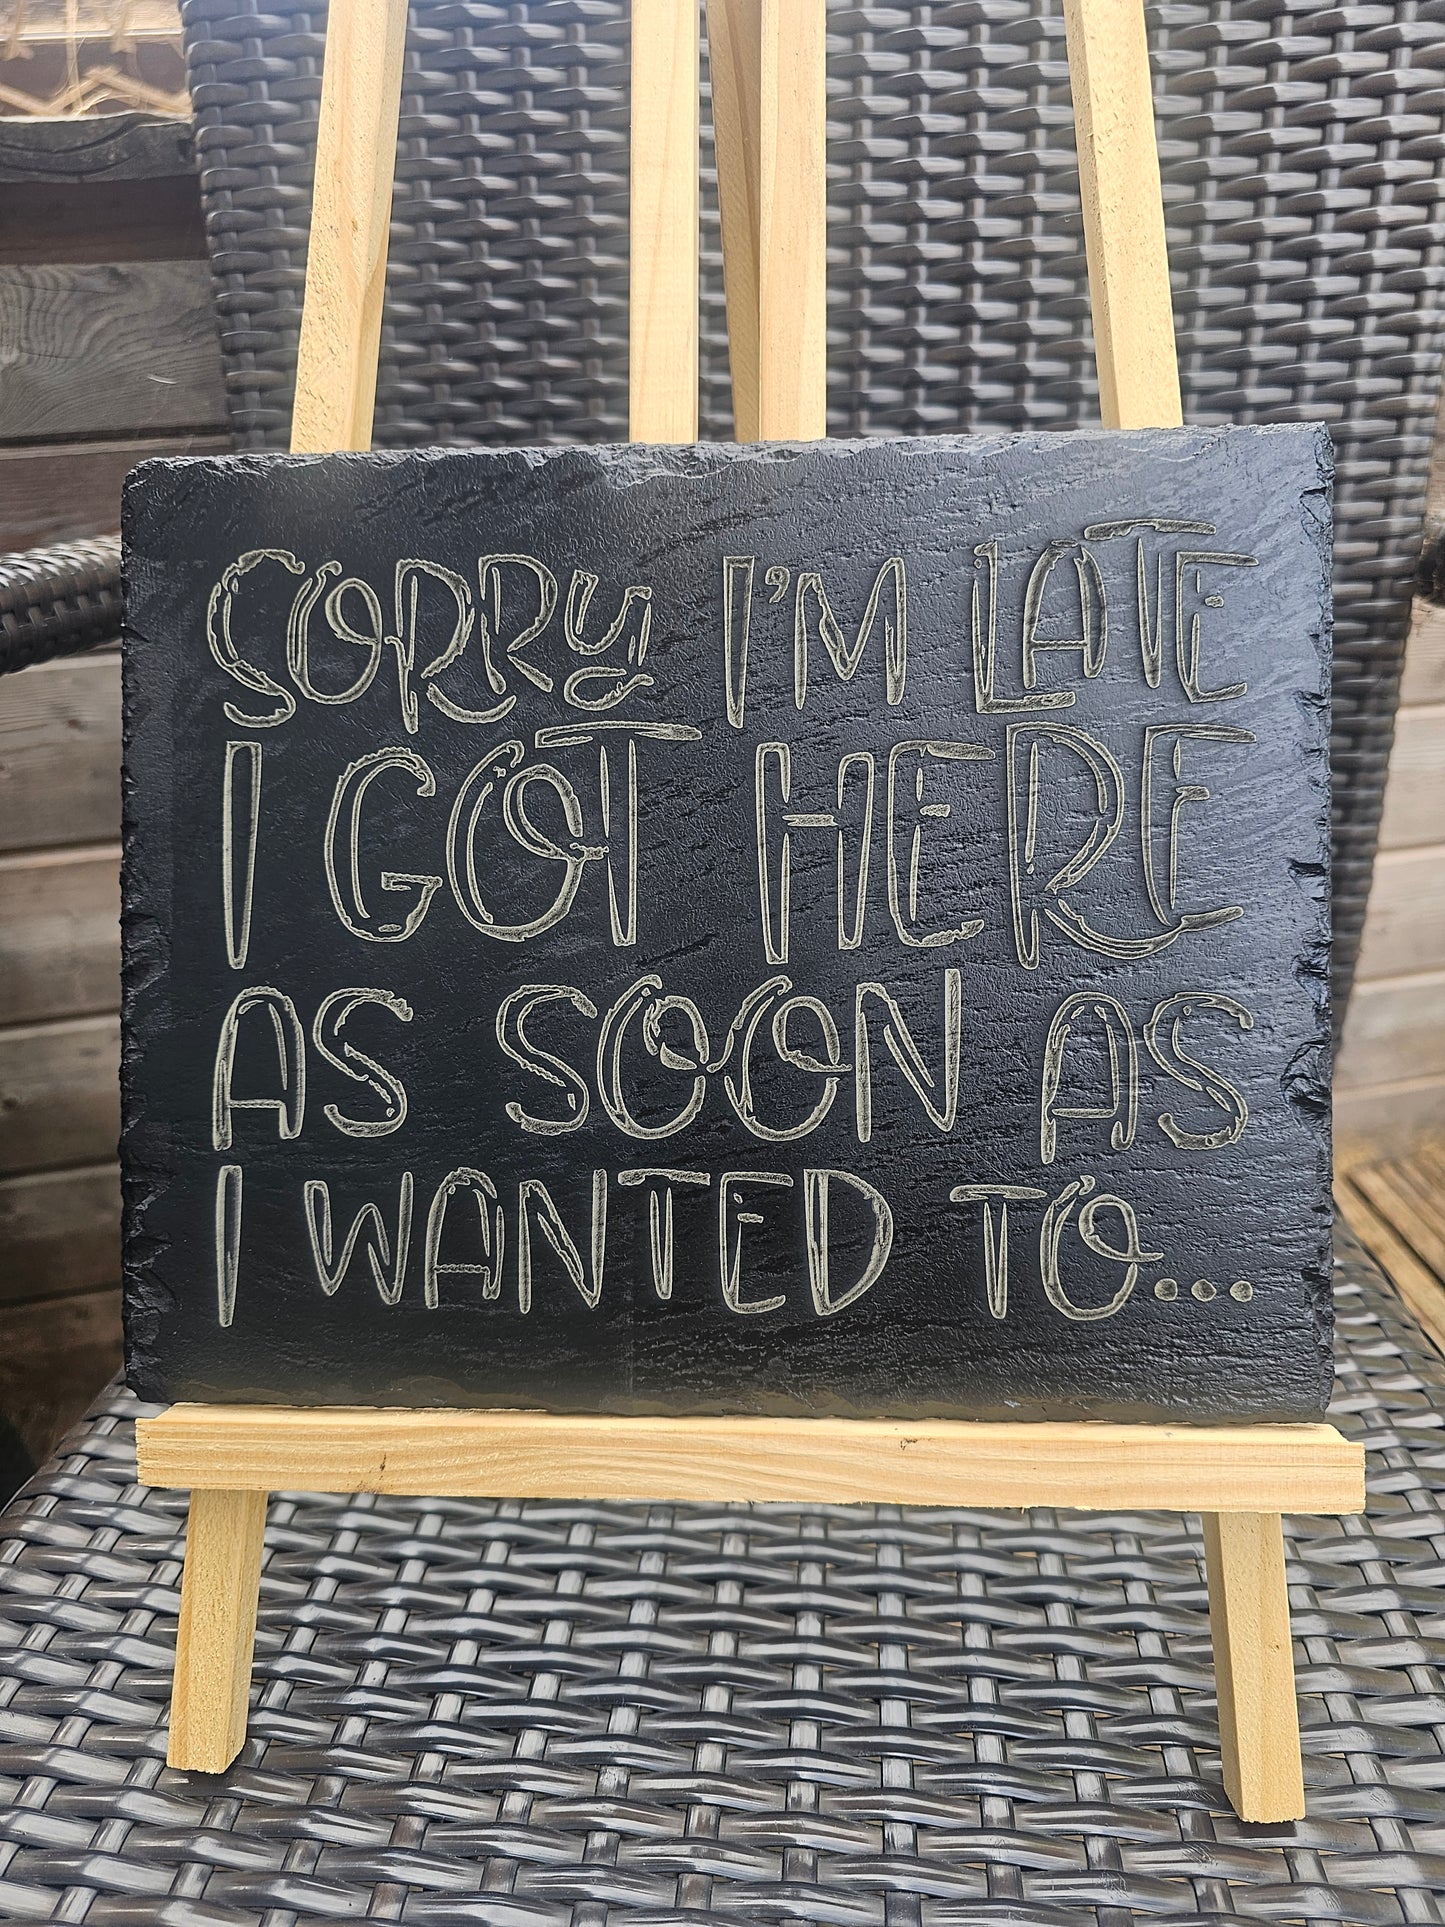 SORRY I'M LATE
I GOT HERE
AS SOON AS
I WANTED TO...